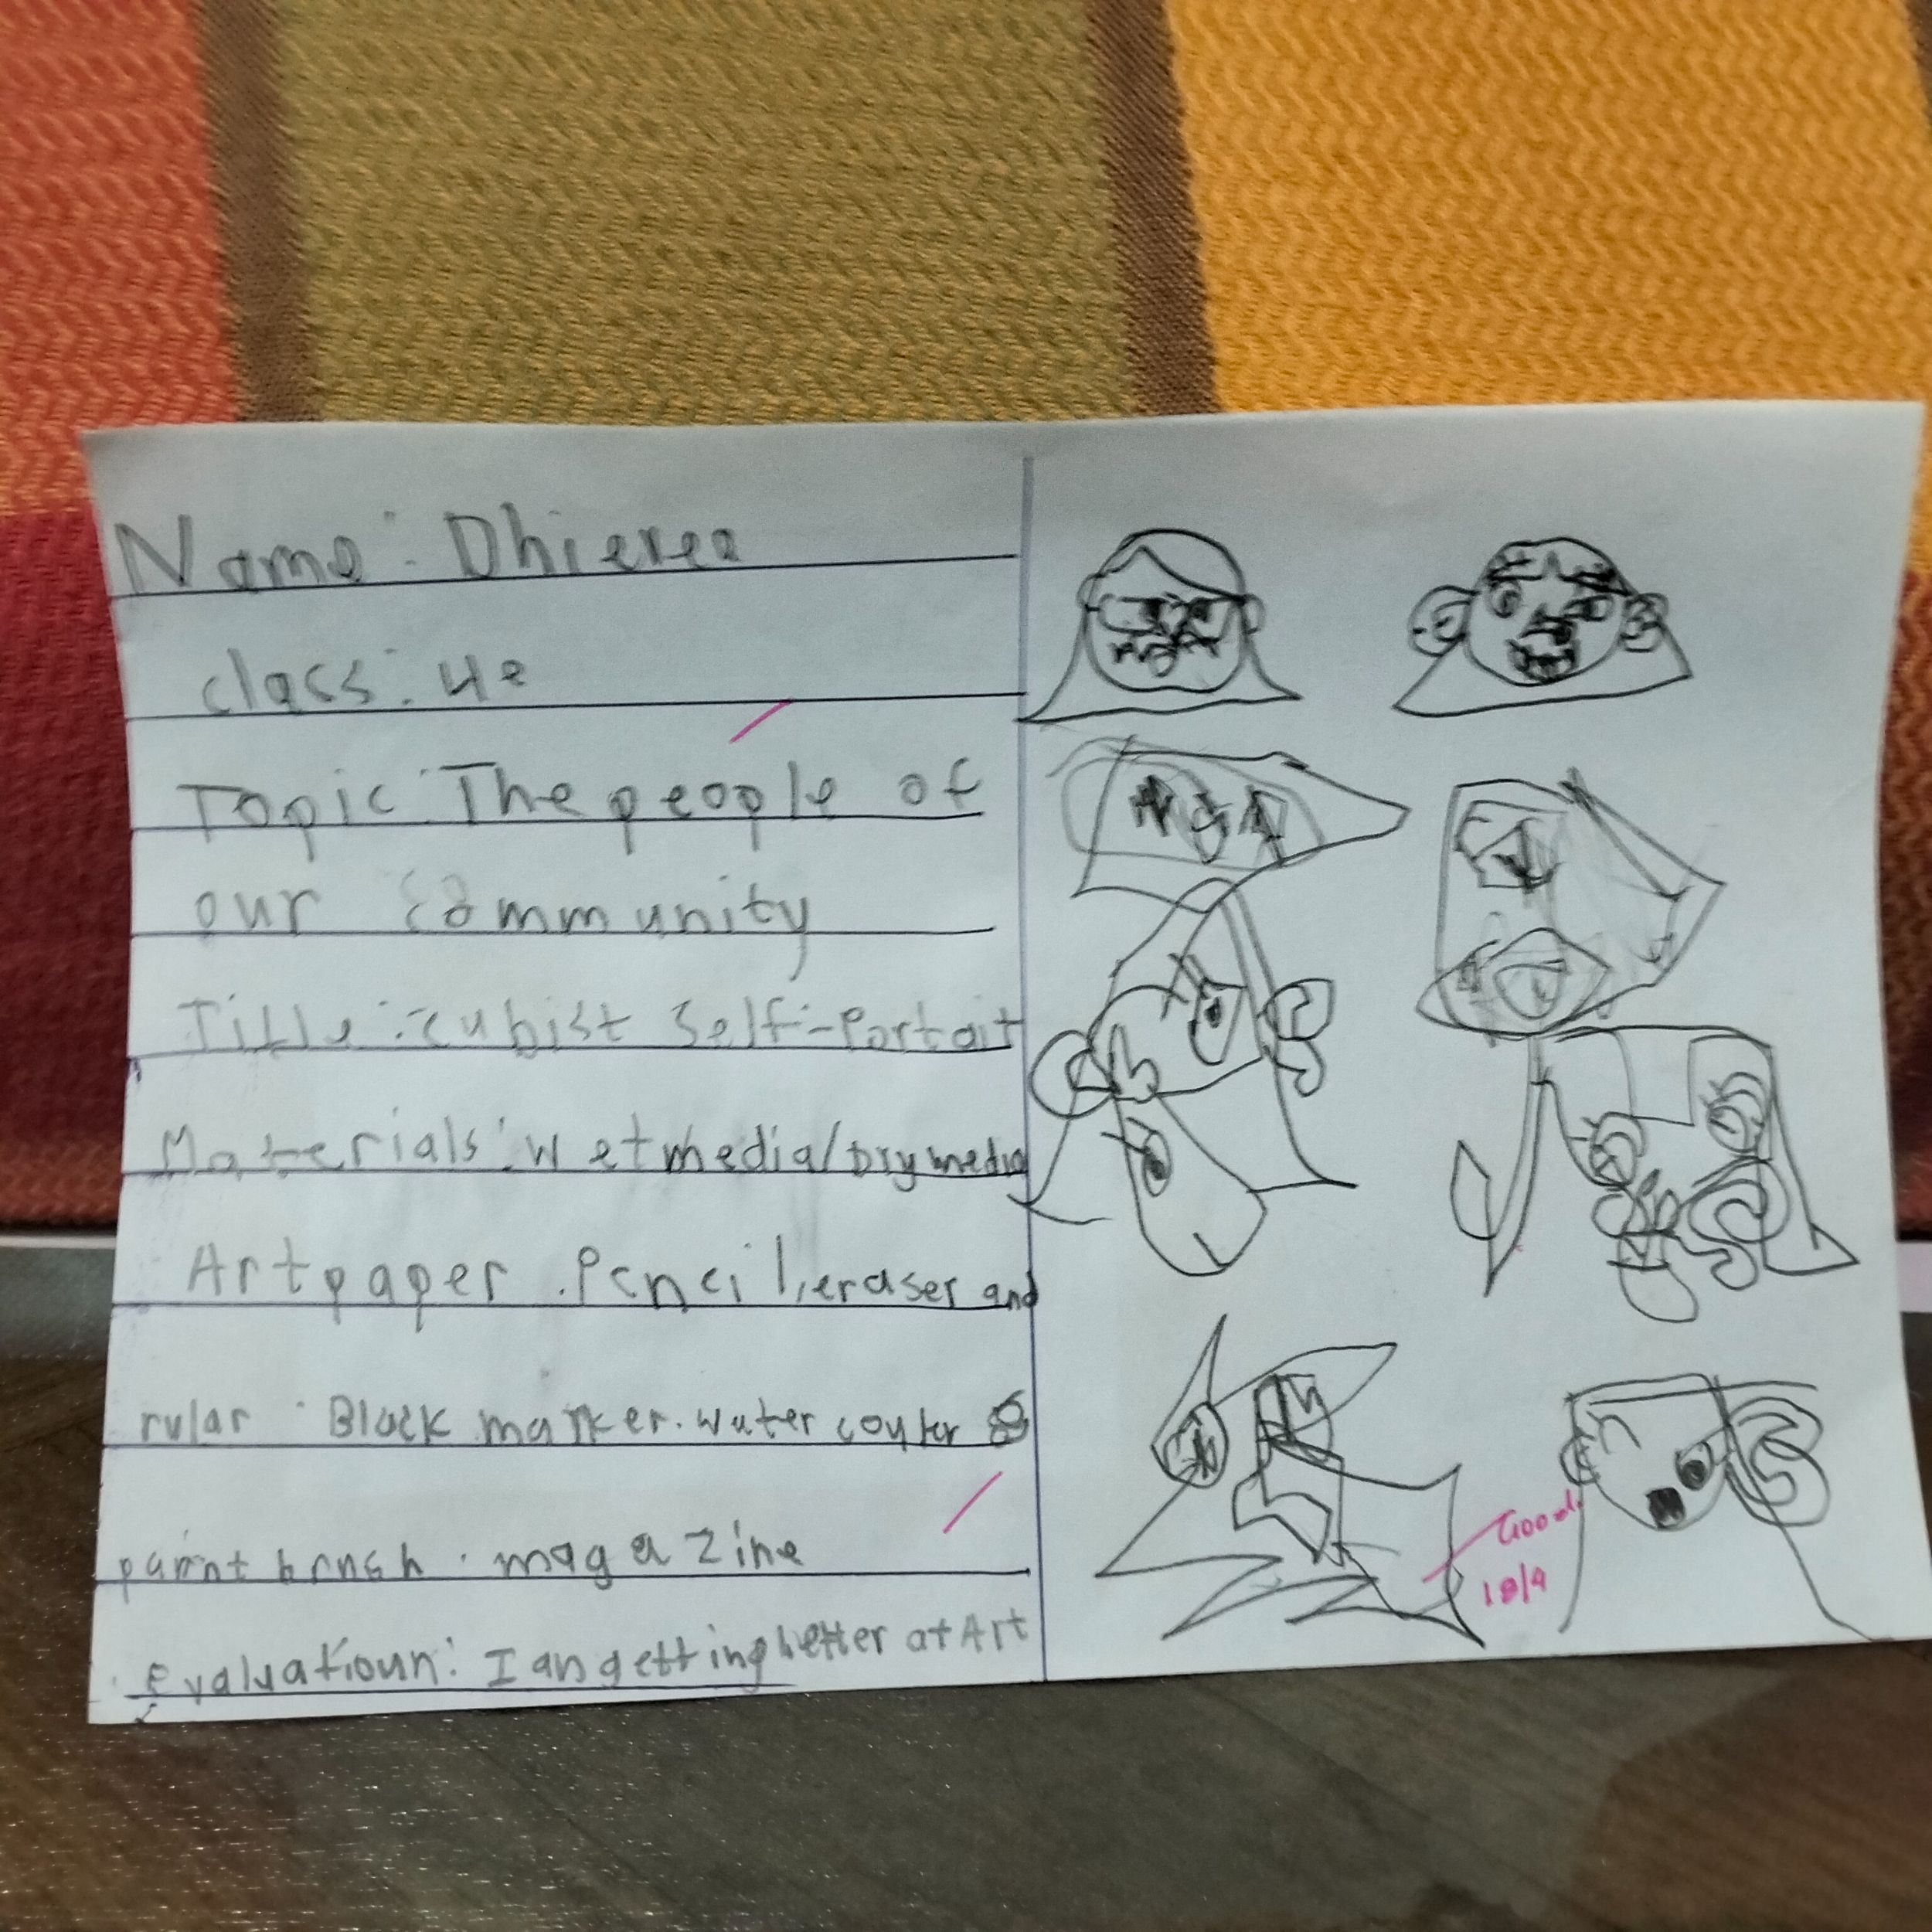 Name: Dhieren
class: 4e
Topic: The people of
our community
Title: cubist Self-Portait
Materials: wet media/Dry media
Art paper. Pencil, eraser and
rular. Black marker. water
paint brush. magazine
Evaluatioun: I am getting better at Art
Good.
18/9